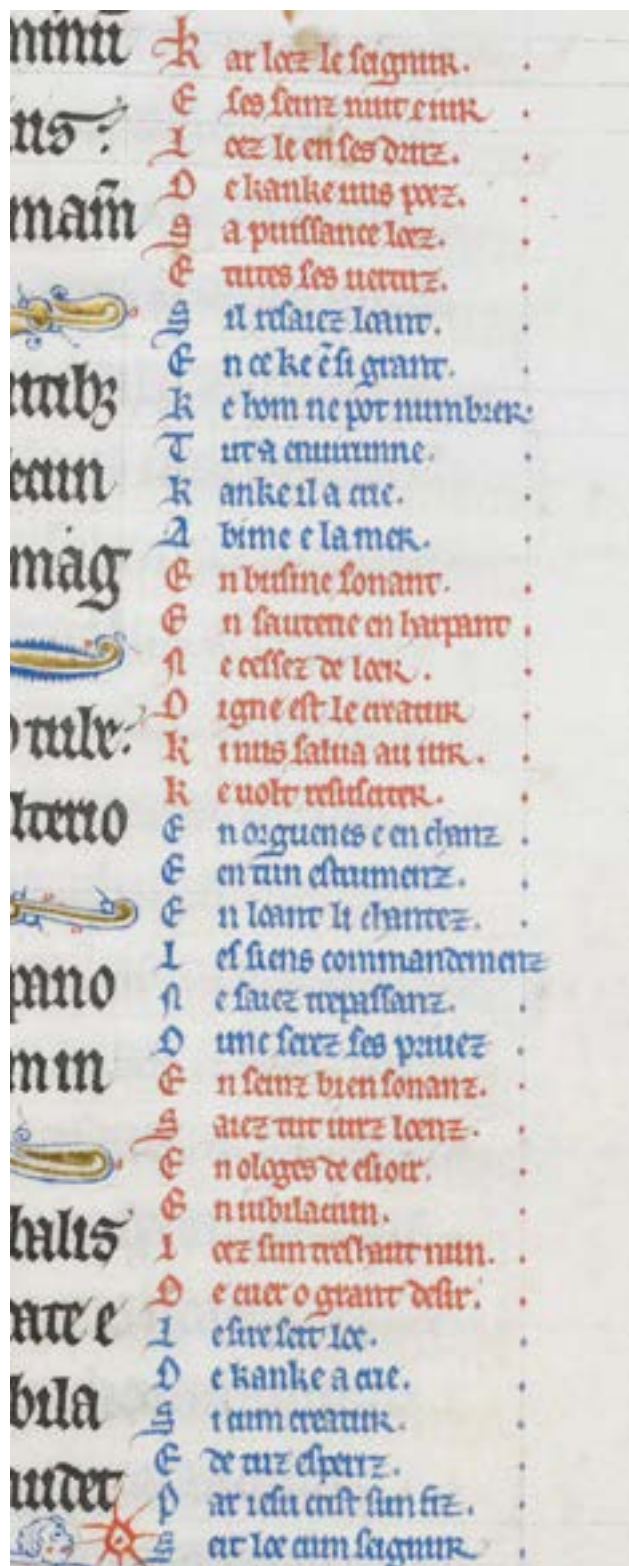 minū
us:
mam̄
ecun
mag
o tube:
lterio
pano
m in
balis
ate e
bila
audet
Kar loez le seignur.
E ses seinz nuit e iur
Loez le en ses duiz.
De kanke uus poez.
Sa puissance loez.
E tutes ses uertuz.
Sil resaiez loant.
En ce ke ē si grant.
Ke hom ne pot numbrer.
Tut a enuirunne.
Kanke il a crie.
Abime e la mer.
En busine sonant.
En sauterie en harpant.
Ne cessez de loer.
Digne est le creatur
Ki nus salua au iur.
Ke uolt resusciter.
En orguenes e en chanz
E en tun estrumenz.
En loant li chantez.
Les siens commandemenz
Ne saiez trepassanz.
Dunc serez ses priuez
En seinz bien sonanz.
Saiez tut iurz loenz.
En ologes de esioir.
En iubilaciun.
Loez sun treshaut nun.
De cuer o grant desir.
Iesu seit loe.
De kanke a crie.
Si cum creatur.
E de tuz esperiz.
Par iesu crist sun fiz.
Seit loe cum seignur